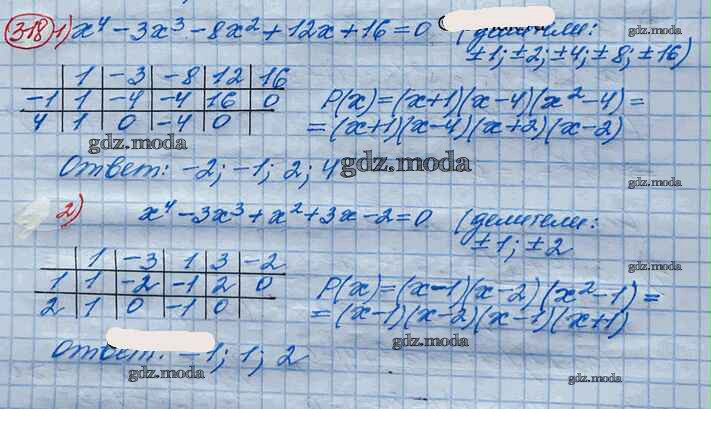 318 1) x⁴ - 3x³ - 8x² + 12x + 16 = 0 (делители:
±1; ±2; ±4; ±8; ±16)
1 -3 -8 12 16
-1 1 -4 -4 16 0
4 1 0 -4 0
P(x) = (x+1)(x-4)(x²-4) =
= (x+1)(x-4)(x+2)(x-2)
Ответ: -2; -1; 2; 4
2) x⁴ - 3x³ + x² + 3x - 2 = 0 (делители:
±1; ±2
1 -3 1 3 -2
1 1 -2 -1 2 0
2 1 0 -1 0
P(x) = (x-1)(x-2)(x²-1) =
= (x-1)(x-2)(x-1)(x+1)
Ответ: -1; 1; 2
gdz.moda
gdz.moda
gdz.moda
gdz.moda
gdz.moda
gdz.moda
gdz.moda
gdz.moda
gdz.moda
gdz.moda